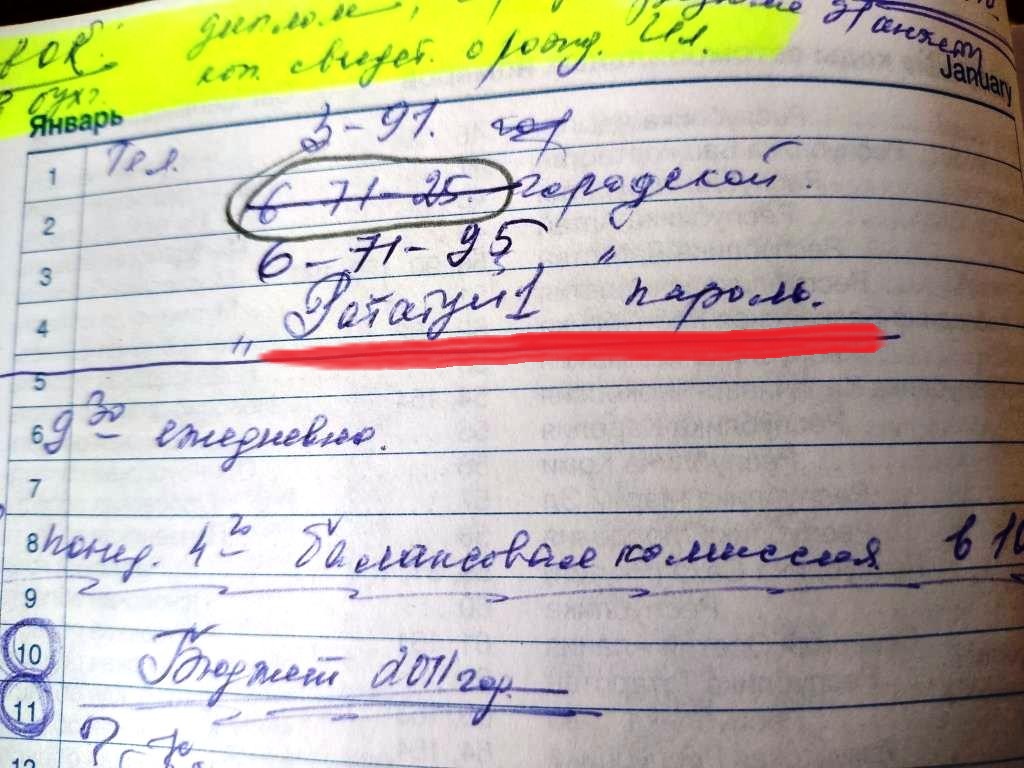 диплом,
анкеты
коп. свидет. о рожд. Ил.
бухг.
Январь
January
1 Тел. 3-91. гор
2 6-71-25. городской.
3 6-71-95 "
4 " Рататуй1 пароль.
5
6 9 30 ежедневно.
7
8 понед. 4го Балансовая комиссия в 10
9
10 Бюджет 2011 год.
11
12